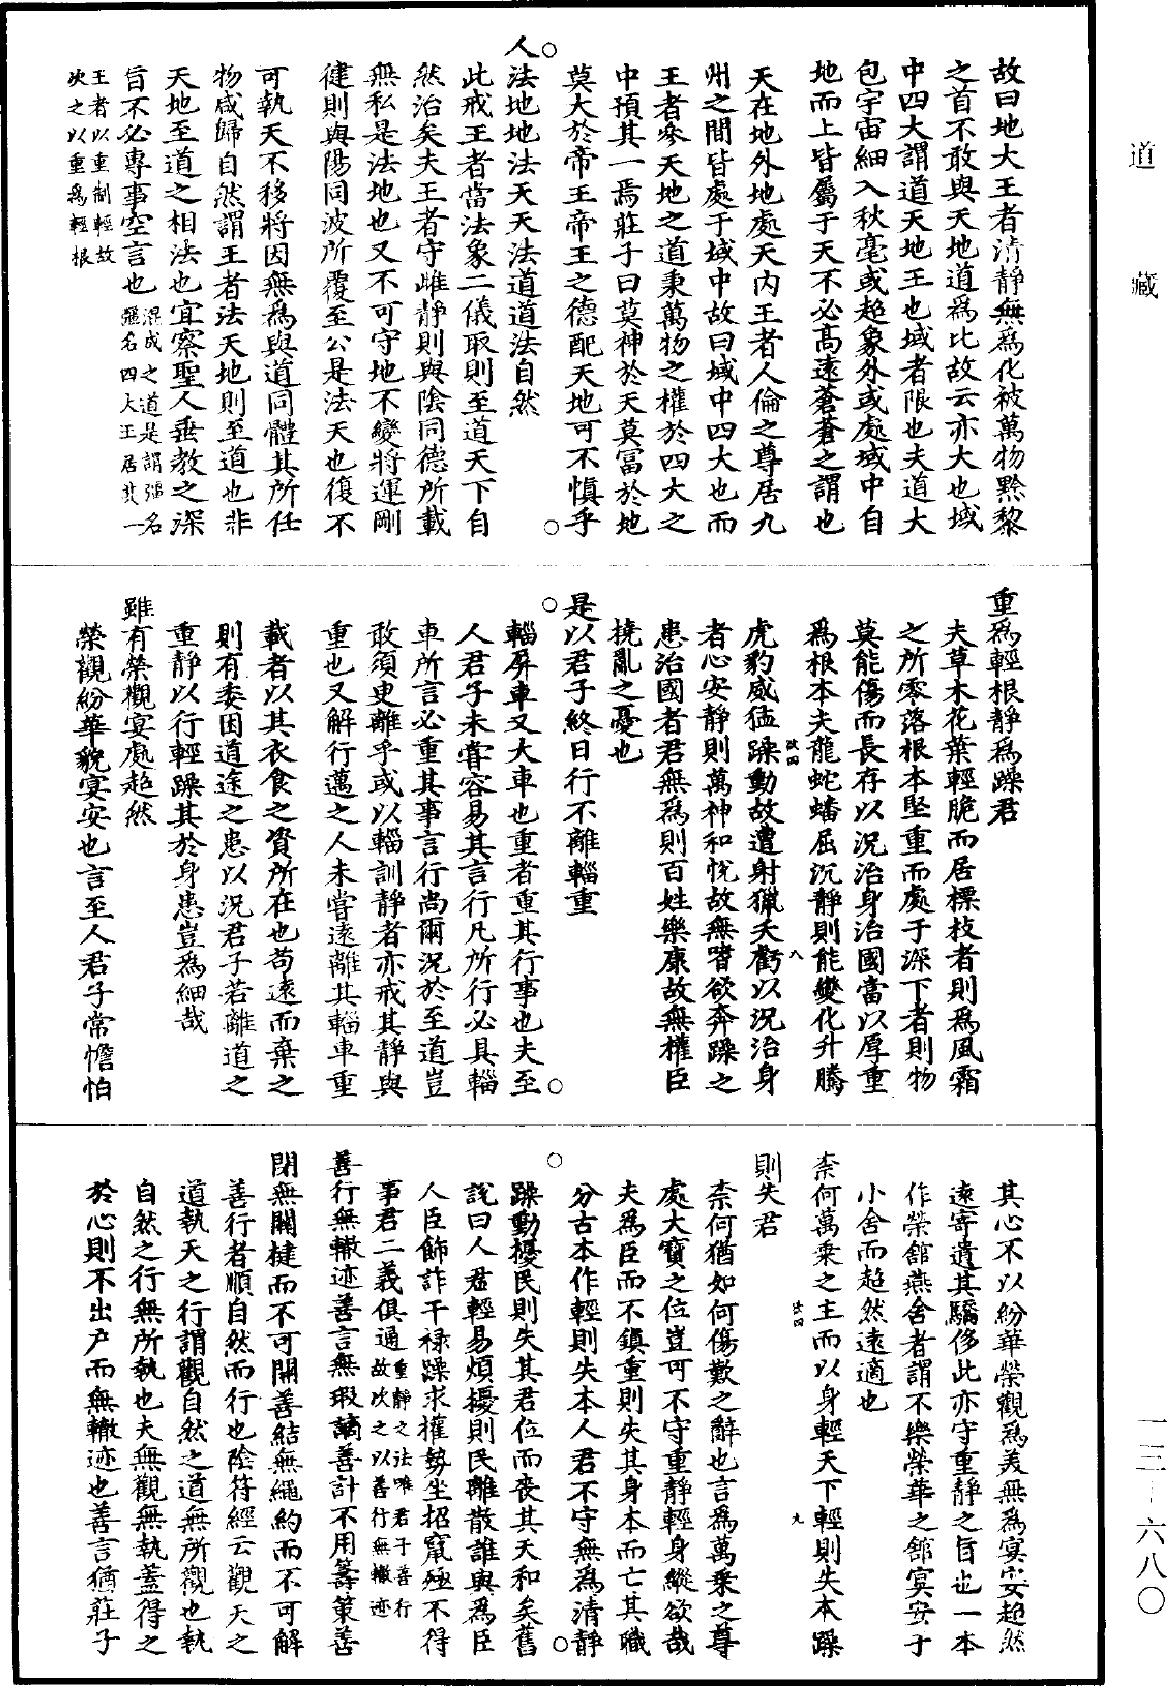 道藏
故曰地大王者清靜無為化被萬物黔黎
之首不敢與天地道為比故云亦大也域
中四大謂道天地王也域者限也夫道大
包宇宙細入秋毫或超象外或處域中自
地而上皆屬于天不必高遠蒼蒼之謂也
天在地外地處天內王者人倫之尊居九
州之間皆處于域中故曰域中四大也而
王者參天地之道秉萬物之權於四大之
中預其一焉莊子曰莫神於天莫富於地
莫大於帝王帝王之德配天地可不慎乎
人法地地法天天法道道法自然
此戒王者當法象二儀取則至道天下自
然治矣夫王者守雌靜則與陰同德所載
無私是法地也又不可守地不變將運剛
健則與陽同波所覆至公是法天也復不
可執天不移將因無為與道同體其所任
物咸歸自然謂王者法天地則至道也非
天地至道之相法也宜察聖人垂教之深
旨不必專事空言也混成之道是謂彊名彊名四大王居其一
王者以重制輕故次之以重為輕根
重為輕根靜為躁君
夫草木花葉輕脆而居標枝者則為風霜
之所零落根本堅重而處于深下者則物
莫能傷而長存以況治身治國當以厚重
為根本夫龍蛇蟠屈沉靜則能變化升騰
虎豹威猛躁動故遭射獵夭虧以況治身
者心安靜則萬神和悅故無嗜欲奔躁之
患治國者君無為則百姓樂康故無權臣
撓亂之憂也
是以君子終日行不離輜重
輜屏車又大車也重者重其行事也夫至
人君子未嘗容易其言行凡所行必具輜
車所言必重其事言行尚爾況於至道豈
敢須臾離乎或以輜訓靜者亦戒其靜與
重也又解行邁之人未嘗遠離其輜車重
載者以其衣食之資所在也苟遠而棄之
則有委困道途之患以況君子若離道之
重靜以行輕躁其於身患豈為細哉
雖有榮觀宴處超然
榮觀紛華貌宴安也言至人君子常憺怕
其心不以紛華榮觀為美無為寞安超然
遠寄遺其驕侈此亦守重靜之旨也一本
作榮館燕舍者謂不樂榮華之館寞安于
小舍而超然遠適也
柰何萬乘之主而以身輕天下輕則失本躁
則失君
柰何猶如何傷歎之辭也言為萬乘之尊
處大寶之位豈可不守重靜輕身縱欲哉
夫為臣而不鎮重則失其身本而亡其職
分古本作輕則失本人君不守無為清靜
躁動擾民則失其君位而喪其天和矣舊
說曰人君輕易煩擾則民離散誰與為臣
人臣飾詐干祿躁求權勢坐招竄殛不得
事君二義俱通重靜之法唯君子善行故次之以善行無轍迹
善行無轍迹善言無瑕讁善計不用籌策善
閉無關楗而不可開善結無繩約而不可解
善行者順自然而行也陰符經云觀天之
道執天之行謂觀自然之道無所觀也執
自然之行無所執也夫無觀無執蓋得之
於心則不出戶而無轍迹也善言猶莊子
一三－六八〇